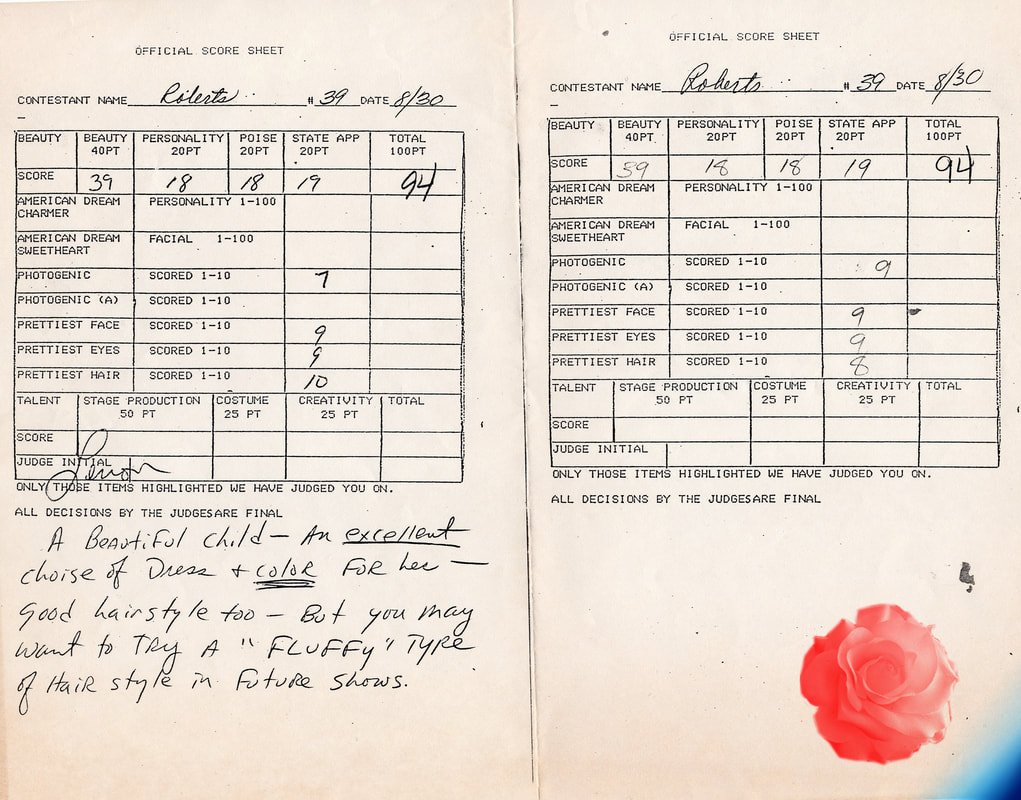 OFFICIAL SCORE SHEET
CONTESTANT NAME Roberts # 39 DATE 8/30
BEAUTY BEAUTY 40PT PERSONALITY 20PT POISE 20PT STATE APP 20PT TOTAL 100PT
SCORE 39 18 18 19 94
AMERICAN DREAM CHARMER PERSONALITY 1-100
AMERICAN DREAM SWEETHEART FACIAL 1-100
PHOTOGENIC SCORED 1-10 7
PHOTOGENIC (A) SCORED 1-10
PRETTIEST FACE SCORED 1-10 9
PRETTIEST EYES SCORED 1-10 9
PRETTIEST HAIR SCORED 1-10 10
TALENT STAGE PRODUCTION 50 PT COSTUME 25 PT CREATIVITY 25 PT TOTAL
SCORE
JUDGE INITIAL
ONLY THOSE ITEMS HIGHLIGHTED WE HAVE JUDGED YOU ON.
ALL DECISIONS BY THE JUDGESARE FINAL
A Beautiful child — An excellent
choise of Dress + color For her —
Good hairstyle too — But you may
want to Try A "FLUFFy" Type
of Hair style in Future shows.
OFFICIAL SCORE SHEET
CONTESTANT NAME Roberts # 39 DATE 8/30
BEAUTY BEAUTY 40PT PERSONALITY 20PT POISE 20PT STATE APP 20PT TOTAL 100PT
SCORE 39 18 18 19 94
AMERICAN DREAM CHARMER PERSONALITY 1-100
AMERICAN DREAM SWEETHEART FACIAL 1-100
PHOTOGENIC SCORED 1-10 9
PHOTOGENIC (A) SCORED 1-10
PRETTIEST FACE SCORED 1-10 9
PRETTIEST EYES SCORED 1-10 9
PRETTIEST HAIR SCORED 1-10 8
TALENT STAGE PRODUCTION 50 PT COSTUME 25 PT CREATIVITY 25 PT TOTAL
SCORE
JUDGE INITIAL
ONLY THOSE ITEMS HIGHLIGHTED WE HAVE JUDGED YOU ON.
ALL DECISIONS BY THE JUDGESARE FINAL